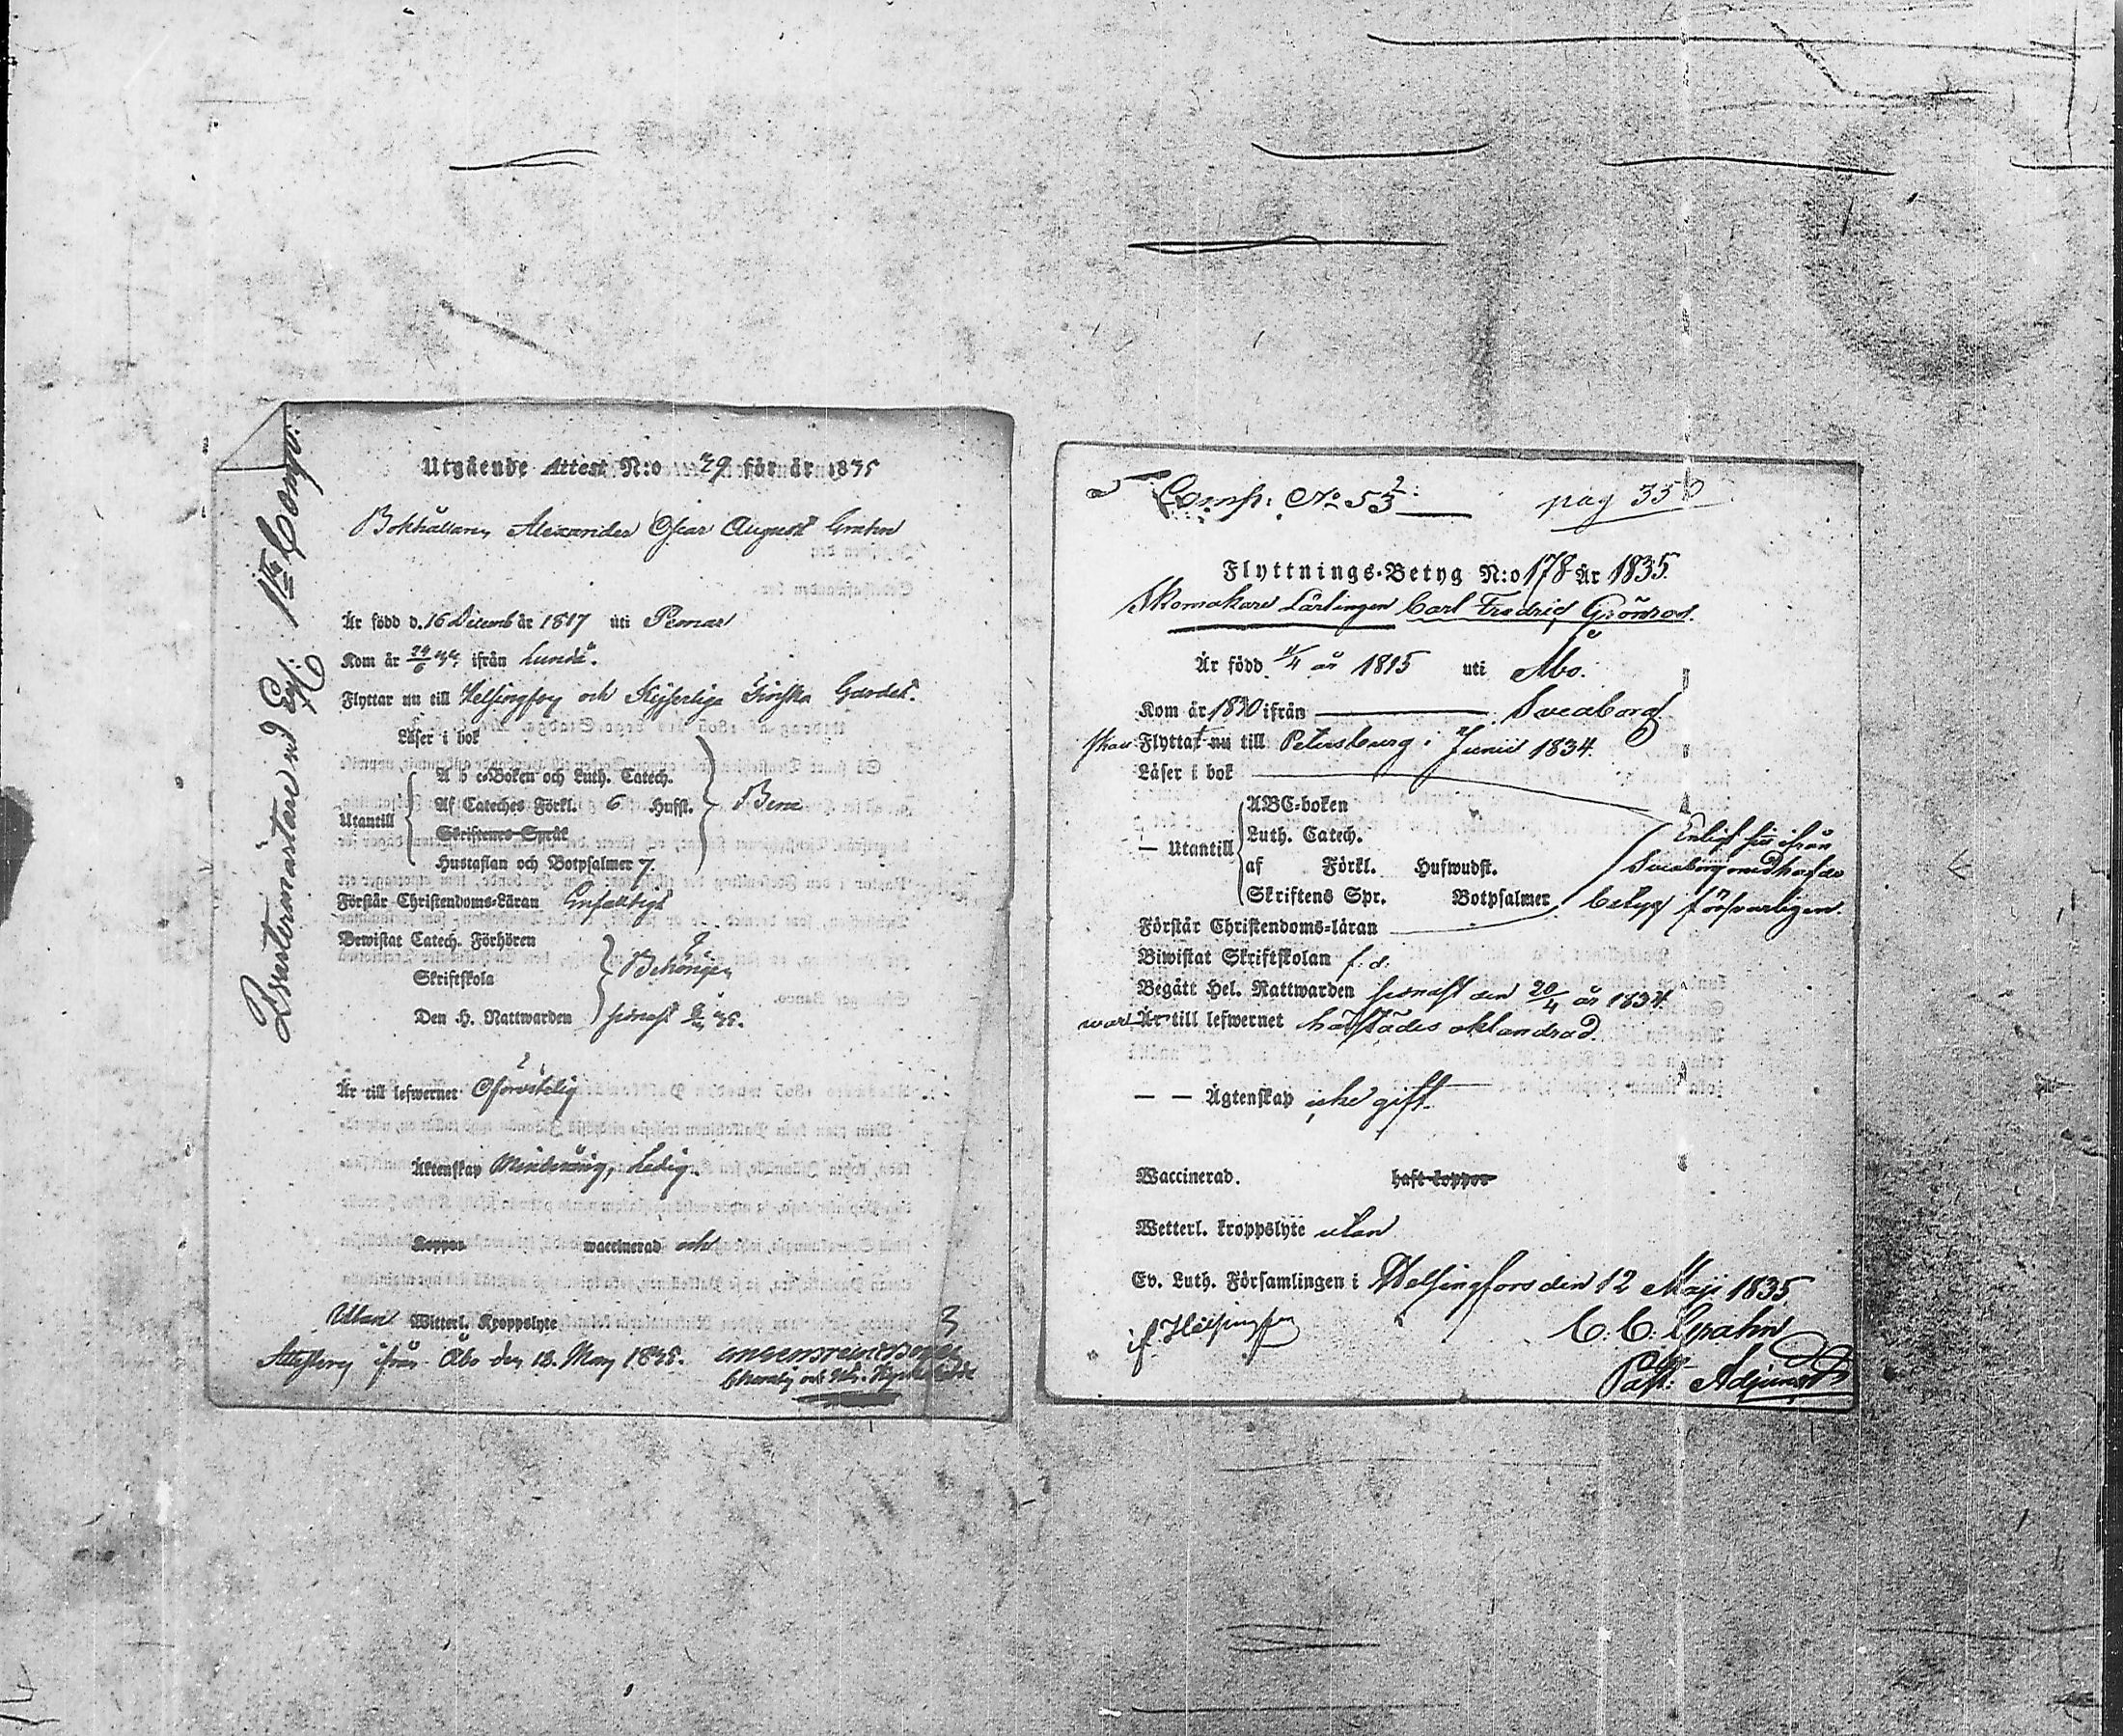 1sta Comp.
Utgående Attest N:o 79 för år 1835
Bokhållaren Alexander Oscar August Grahn
Är född d. 16 Decemb år 1817 uti Pemar
Kom år ifrån Lundo.
Flyttar nu till Helsingfors och Kejserliga Finska Gardet.
Läser i bok
A b c-Boken och Luth. Catech.
Af Cateches Förkl. 6 Hufst.
Utantill
Skriftenes Språk
Hustaflan och Botpsalmer 7.
Förstår Christendoms-Läran Enfaldigt
Bewistat Catech. Förhören
Skriftskola
Behörigen
Den H. Nattwarden senast
Är till lefwernet Oförvitelig
Äktenskap Minderårig, Ledig.
Koppor waccinerad och
Utan Witterl. Kroppslyte
ifrån Åbo den 13. May 1835.
Comp: No 53
pag 35
Flyttnings-Betyg N:o 178 År 1835.
Skomakare Lärlingen Carl Fredric Grönroos.
Är född 11/4 år 1815 uti Åbo.
Kom år 1830 ifrån Sveaborg
skall Flyttat nu till Petersburg i Junii 1834.
Läser i bok
ABC-boken
Luth. Catech.
— Utantill
af Förkl. Hufwudst.
Skriftens Spr. Botpsalmer
Enligt sin ifrån
Sveaborg medhafde
betyg försvarligen.
Förstår Christendoms-läran
Biwistat Skriftskolan f. d.
Begått Hel. Nattwarden senast den 20/4 år 1834.
war Är till lefwernet härstädes oklandrad.
— — Ägtenskap icke gift.
Waccinerad. haft koppor
Wetterl. kroppslyte utan
Ev. Luth. Församlingen i Helsingfors den 12 Maji 1835.
C. C. Grahn
Past: Adjunct
if Helsingfors